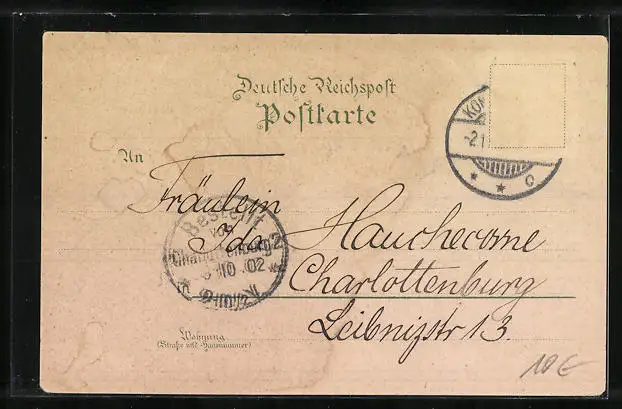 Deutsche Reichspost
Postkarte
An
Fräulein
Ida Hauchecorne
Charlottenburg
Leibnizstr 13
Wohnung
(Straße und Hausnummer)
Bestellt
vom
Charlottenburg 2
10 02
C
10 €